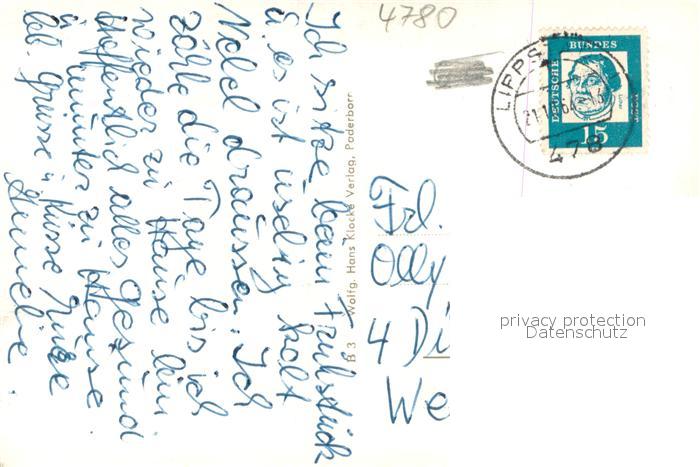 Ich sitze beim Frühstück
u. es ist usslig kalt
Nebel draussen. Ich
zähle die Tage bis ich
wieder zu Hause bin
Hoffentlich alles gesund
u. munter zu Hause
lb. Grüsse u. Küsse
4780
B 3 Wolfg. Hans Klocke Verlag, Paderborn
LIPPS
21.1.64
478
DEUTSCHE BUNDES
15
Frl.
Olly
4 Di
We
privacy protection
Datenschutz